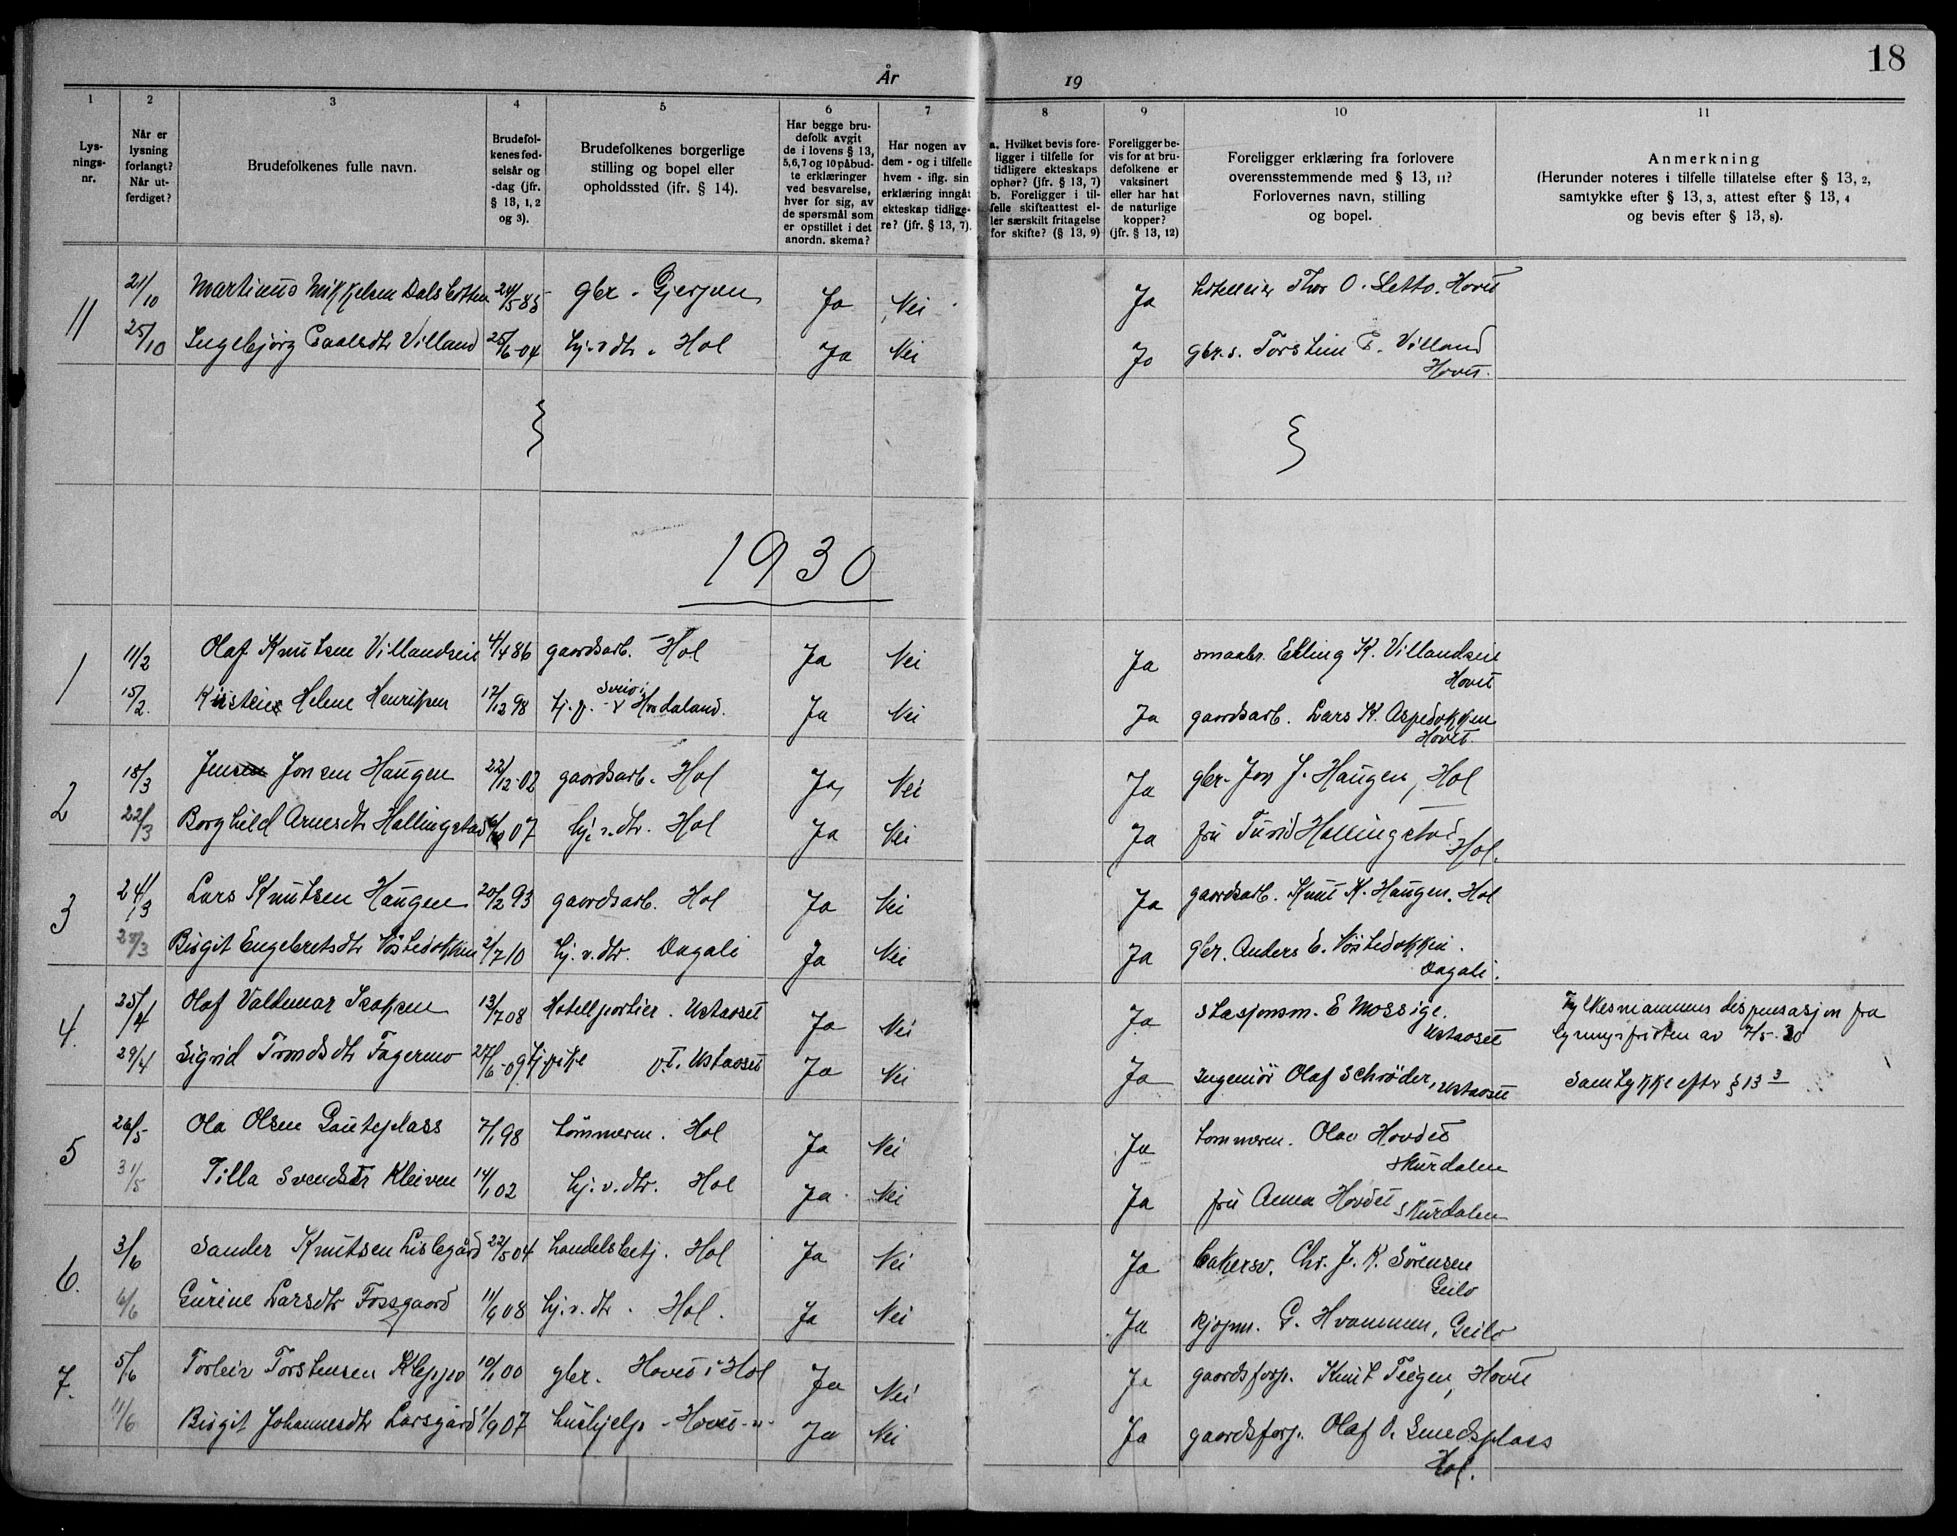 18
År 19
1 2 3 4 5 6 7 8 9 10 11
Lys-
nings-
nr.
Når er
lysning
forlangt?
Når ut-
ferdiget?
Brudefolkenes fulle navn.
Brudefol-
kenes fød-
selsår og
-dag (jfr.
§ 13, 1, 2
og 3).
Brudefolkenes borgerlige
stilling og bopel eller
opholdssted (jfr. § 14).
Har begge bru-
defolk avgit
de i lovens § 13,
5, 6, 7 og 10 påbud-
te erklæringer
ved besvarelse,
hver for sig, av
de spørsmål som
er opstillet i det
anordn. skema?
Har nogen av
dem - og i tilfelle
hvem - iflg. sin
erklæring inngåt
ekteskap tidlige-
re? (jfr. § 13, 7).
a. Hvilket bevis fore-
ligger i tilfelle for
tidligere ekteskaps
ophør? (jfr. § 13, 7)
b. Foreligger i til-
felle skifteattest el-
ler særskilt fritagelse
for skifte? (§ 13, 9)
Foreligger be-
vis for at bru-
defolkene er
vaksinert
eller har hat
de naturlige
kopper?
(jfr. § 13, 12)
Foreligger erklæring fra forlovere
overensstemmende med § 13, 11?
Forlovernes navn, stilling
og bopel.
Anmerkning
(Herunder noteres i tilfelle tillatelse efter § 13, 2,
samtykke efter § 13, 3, attest efter § 13, 4
og bevis efter § 13, 8).
11 21/10 Martinus Mikkelsen 24/5 85 gbr. Ja Nei Ja Thor O. Sletto. Hovet
25/10 Ingebjørg Paalsdtr Villand 25/6-04 hj.v.dtr. Hol Ja Nei Ja gbr.s. Torstein P. Villand
Hovet.
1930
1 11/2 Olaf Knutsen Villandseie 4/4 86 gaardsarb. Hol Ja Nei Ja smaabr. Elling K. Villandseie
Hovet
15/2. Helene Henriksen 17/12 98 Sveio i Hordaland. Ja Nei Ja gaardsarb. Lars K. Aspedokken
Hovet.
2 18/3 Jonsen Haugen 22/12-02 gaardsarb. Hol Ja, Nei Ja gbr. Jon J. Haugen, Hol
22/3 Borghild Arnesdtr Hallingstad 07 hj.v.dtr. Hol Ja Nei Ja fru Turid Hallingstad
Hol.
3 24/3 Lars Knutsen Haugen 20/2 93 gaardsarb. Hol Ja Nei Ja gaardsarb. Knut K. Haugen. Hol
Birgit Engebretsdtr 2/7 10 hj.v.dtr. Dagali Ja Nei Ja gbr. Anders E.
Dagali.
4. 25/4 Olaf Valdemar Isaksen 13/7 08 Hotellportier. Ustaoset Ja Nei Ja stasjonsm. E Mossige. Fylkesmannens dispensasjon fra
Ustaoset lysningsfristen av 7/5-30
29/4 Sigrid Trondsdtr Fagermo 27/6-09 p.t. Ustaoset Ja Nei Ja Ingeniør Olaf Schrøder, Ustaoset Samtykke efter § 13 3
5 26/5 Ola Olsen Gauteplass 7/1 98 tømmerm. Hol Ja Nei Ja tømmerm. Olav Hovdet
Skurdalen
31/5 Tilla Svendsdtr Kleiven 14/1 02 hj.v.dtr. Hol Ja Nei Ja fru Anna Hovdet Skurdalen
6. 3/6 Sander Knutsen Lislegård 22/5 04 handelsbetj. Hol Ja Nei Ja bakersv. Chr. J. K. Sørensen
Geilo
6/6 Gurine Larsdtr Fossgaard 11/9 08 hj.v.dtr. Hol. Ja Nei Ja kjøpm. G. Hvammen, Geilo
7. 5/6 Torleiv Torstensen Kleppo 10/1 00 gbr. Hovet i Hol Ja Nei Ja gaardsforp. Knut Teigen, Hovet
11/6 Birgit Johannesdtr Larsgård 1/9 07 hushjelp - Hovet -"- Ja Nei Ja gaardsforp. Olaf O. Smedsplass
Hol.